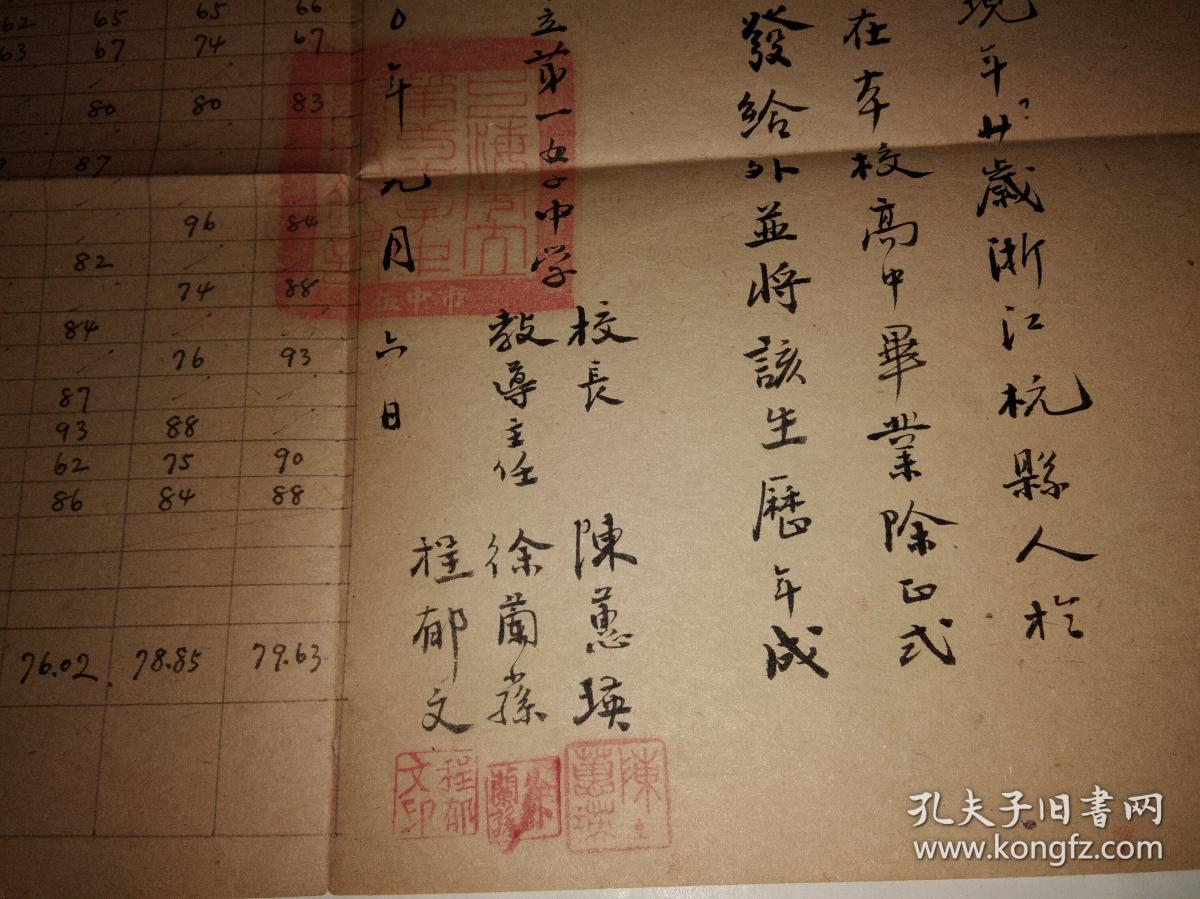 現年廿歲浙江杭縣人於
在本校高中畢業除正式
發給外並將該生歷年成
立苐一女子中学
校長 陳蕙瑛
教導主任 徐蘭蓀
程郁文
0年九月六日
62 65 65 66
63 67 74 67
80 80 83
87
96 84
82
74 88
84
76 93
87
93 88
62 75 90
86 84 88
76.02 78.85 79.63
市中
陳蕙瑛
程郁文印
孔夫子旧书网
www.kongfz.com